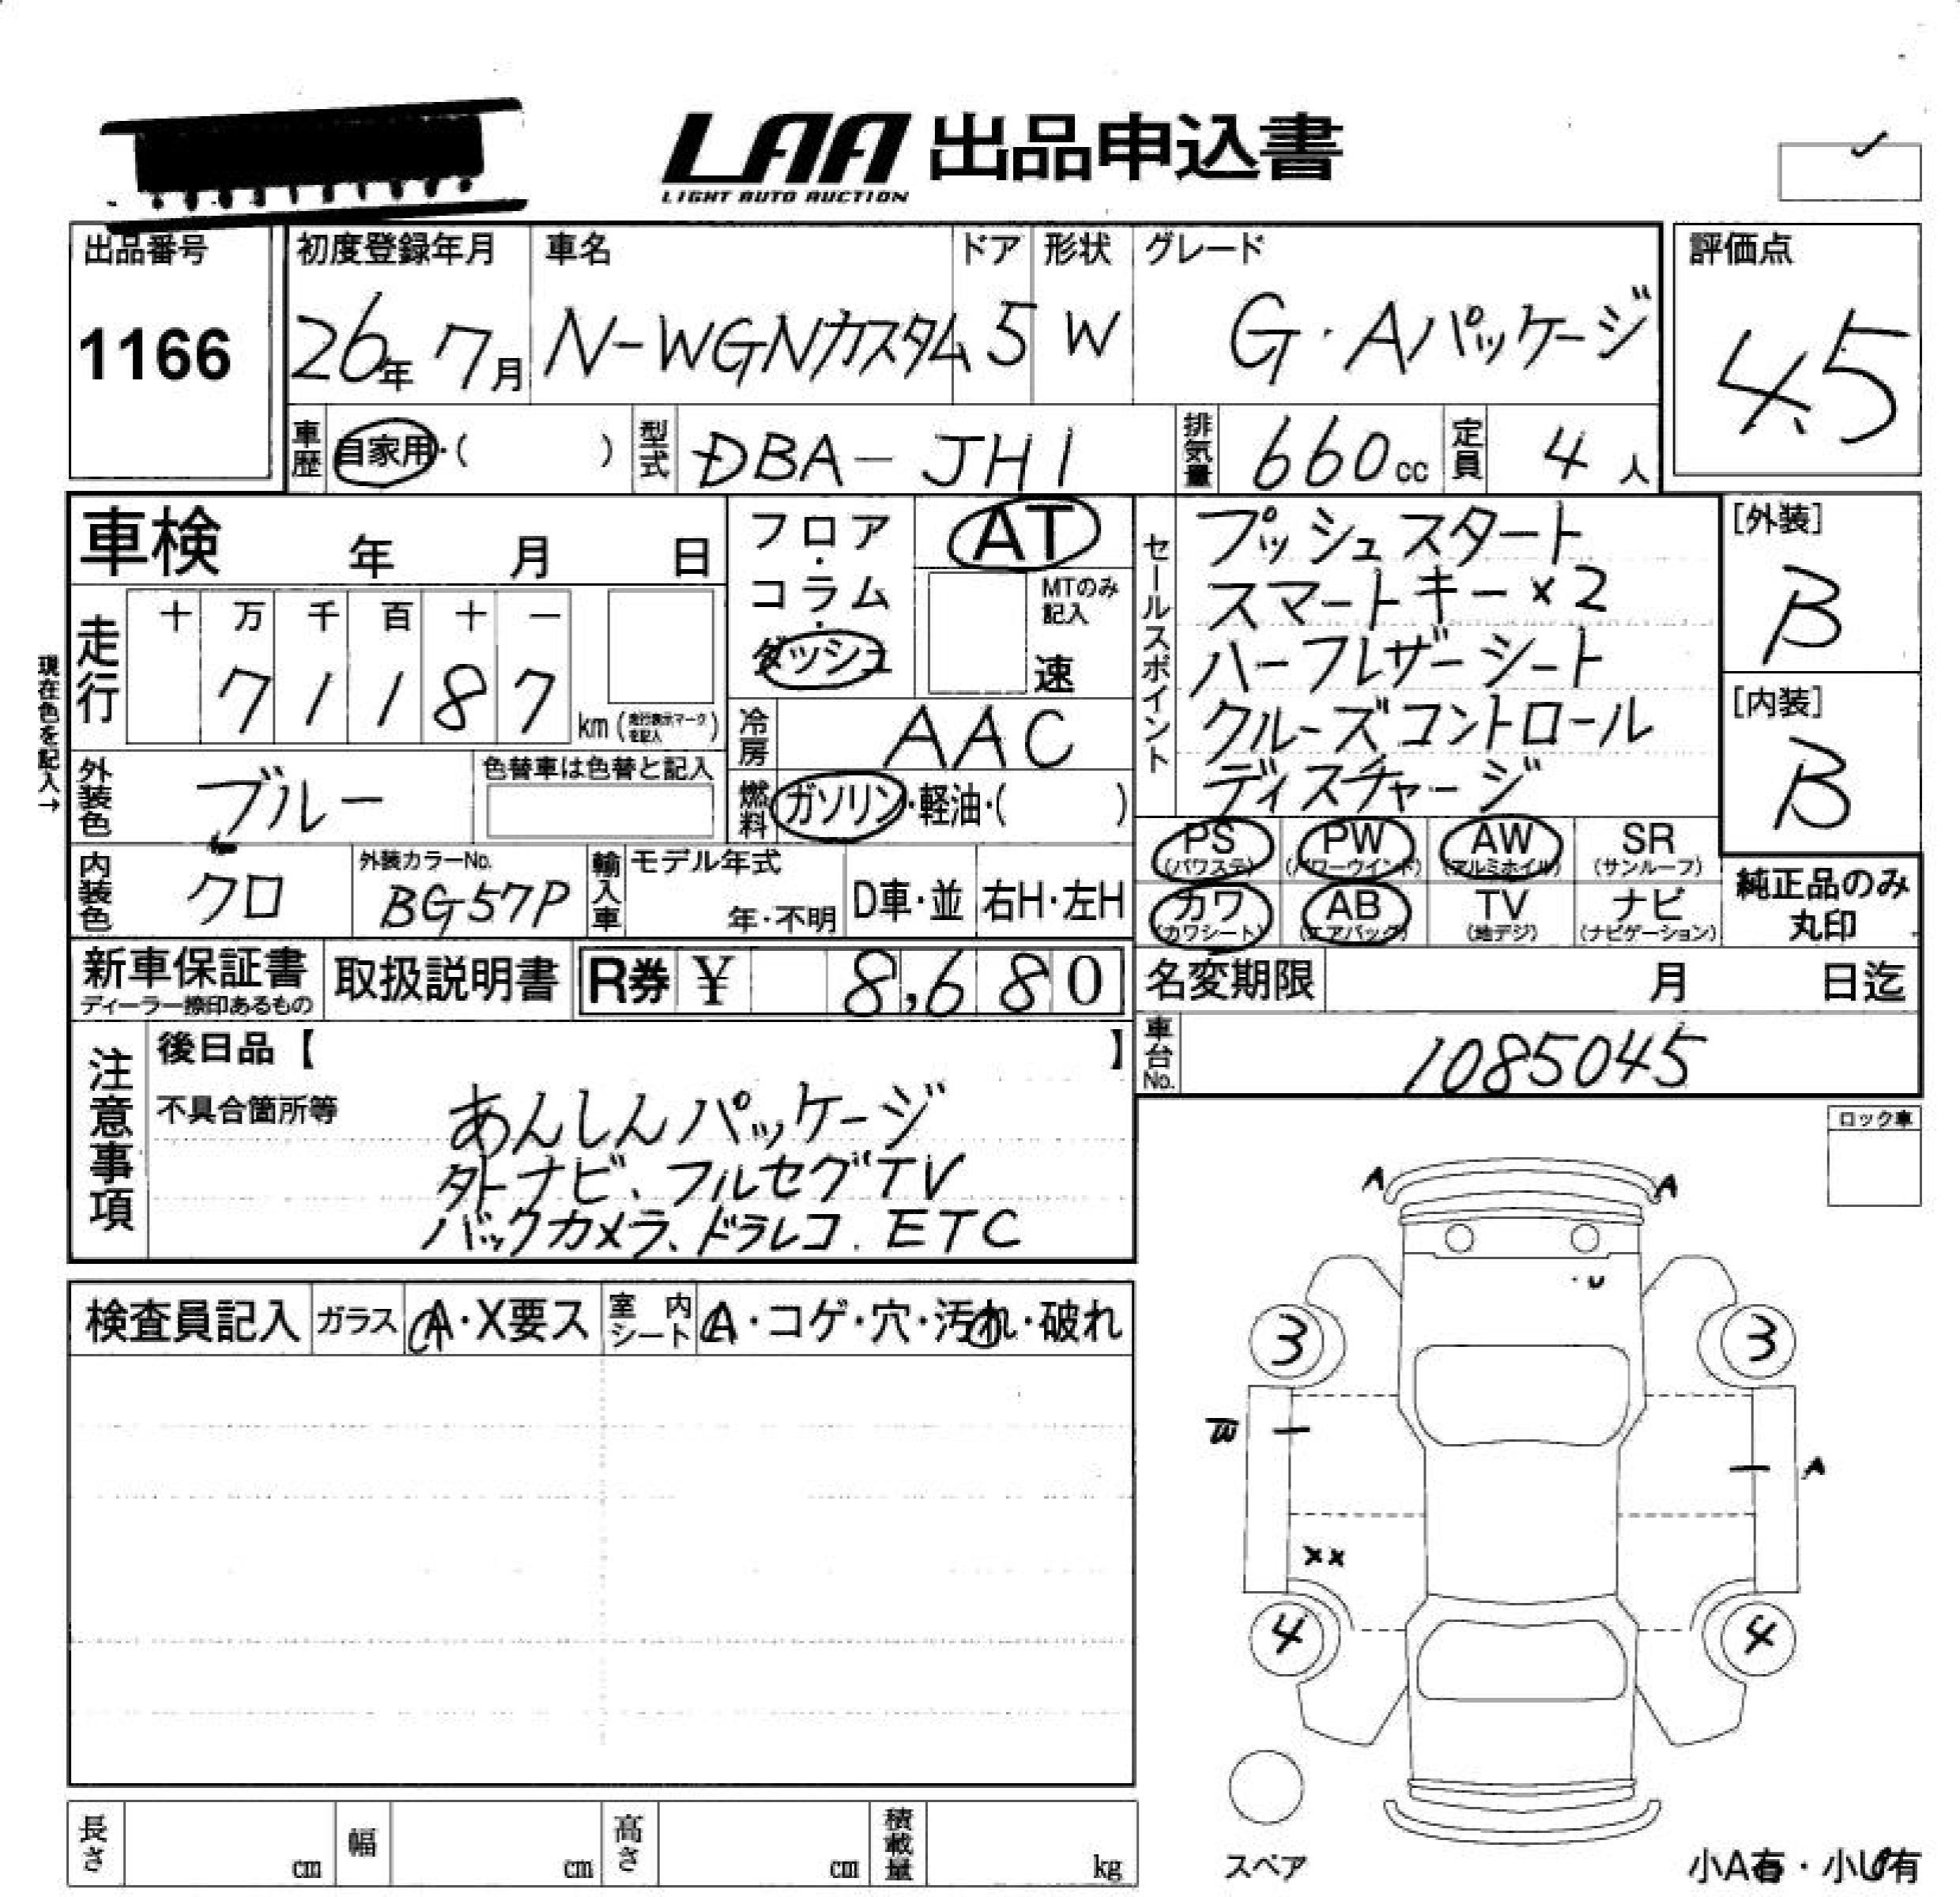 LAA 出品申込書
LIGHT AUTO AUCTION
出品番号 初度登録年月 車名 ドア 形状 グレード 評価点
1166 26年 7月 N-WGNカスタム 5 W G・Aパッケージ 4.5
車歴 自家用・( ) 型式 DBA-JH1 排気量 660cc 定員 4人
車検 年 月 日
フロア・コラム・ダッシュ
AT
MTのみ記入
速
現在色を記入→
走行 十 万 千 百 十 一
7 1 1 8 7 km(走行表示マークを記入)
冷房 AAC
外装色 ブルー 色替車は色替と記入
燃料 ガソリン・軽油・( )
内装色 クロ 外装カラーNo. BG57P 輸入車 モデル年式 年・不明 D車・並 右H・左H
セールスポイント
プッシュスタート
スマートキー×2
ハーフレザーシート
クルーズコントロール
ディスチャージ
[外装]
B
[内装]
B
PS (パワステ) PW (パワーウインド) AW (アルミホイル) SR (サンルーフ)
カワ (カワシート) AB (エアバッグ) TV (地デジ) ナビ (ナビゲーション)
純正品のみ
丸印
新車保証書 取扱説明書 R券 ¥ 8,680
ディーラー捺印あるもの
名変期限 月 日迄
車台No. 1085045
注意事項
後日品【 】
不具合箇所等 あんしんパッケージ
外ナビ、フルセグTV
バックカメラ、ドラレコ、ETC
ロック車
検査員記入 ガラス A・X要ス 室内シート A・コゲ・穴・汚れ・破れ
A A
U
3 3
W A
XX
4 4
スペア
小A有・小U有
長さ cm 幅 cm 高さ cm 積載量 kg